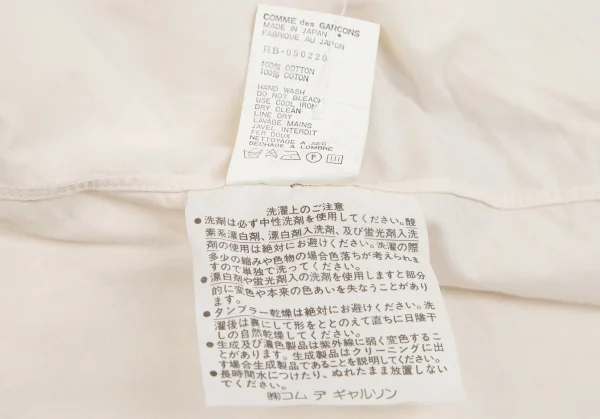 COMME des GARCONS
MADE IN JAPAN
FABRIQUE AU JAPON
RB-050220
100% COTTON
100% COTON
HAND WASH
DO NOT BLEACH
USE COOL IRON
DRY CLEAN
LINE DRY
LAVAGE MAINS
JAVEL INTERDIT
FER DOUX
NETTOYAGE A SEC
SECHAGE A L'OMBRE
洗濯上のご注意
●洗剤は必ず中性洗剤を使用してください。酸
素系漂白剤、漂白剤入洗剤、及び蛍光剤入洗
剤の使用は絶対にお避けください。洗濯の際
多少の縮みや色物の場合色落ちが考えられま
すので単独で洗ってください。
●漂白剤や蛍光剤入の洗剤を使用しますと部分
的に変色や本来の色あいを失なうことがあり
ます。
●タンブラー乾燥は絶対にお避けください。洗
濯後は裏にして形をととのえて直ちに日陰干
しの自然乾燥してください。
●生成及び濃色製品は紫外線に弱く変色するこ
とがあります。生成製品はクリーニングに出
す場合生成品であることを説明してください。
●長時間水につけたり、ぬれたまま放置しない
でください。
㈱コム デ ギャルソン